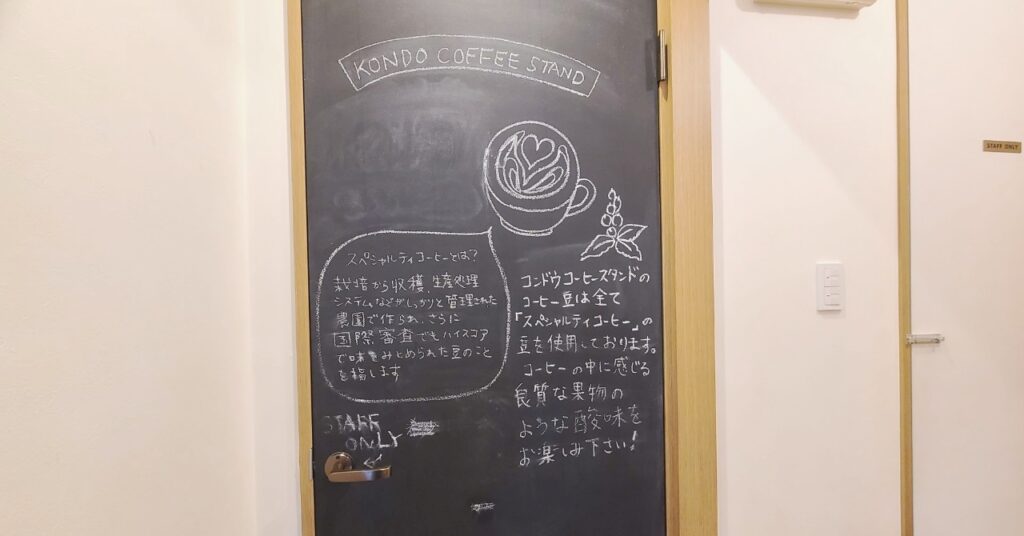 KONDO COFFEE STAND
スペシャルティコーヒーとは?
栽培から収穫、生産処理
システムなどがしっかりと管理された
農園で作られ、さらに
国際審査でもハイスコア
で味をみとめられた豆のこと
を指します
コンドウコーヒースタンドの
コーヒー豆は全て
「スペシャルティコーヒー」の
豆を使用しております。
コーヒーの中に感じる
良質な果物の
ような酸味を
お楽しみ下さい!
STAFF
ONLY
STAFF ONLY